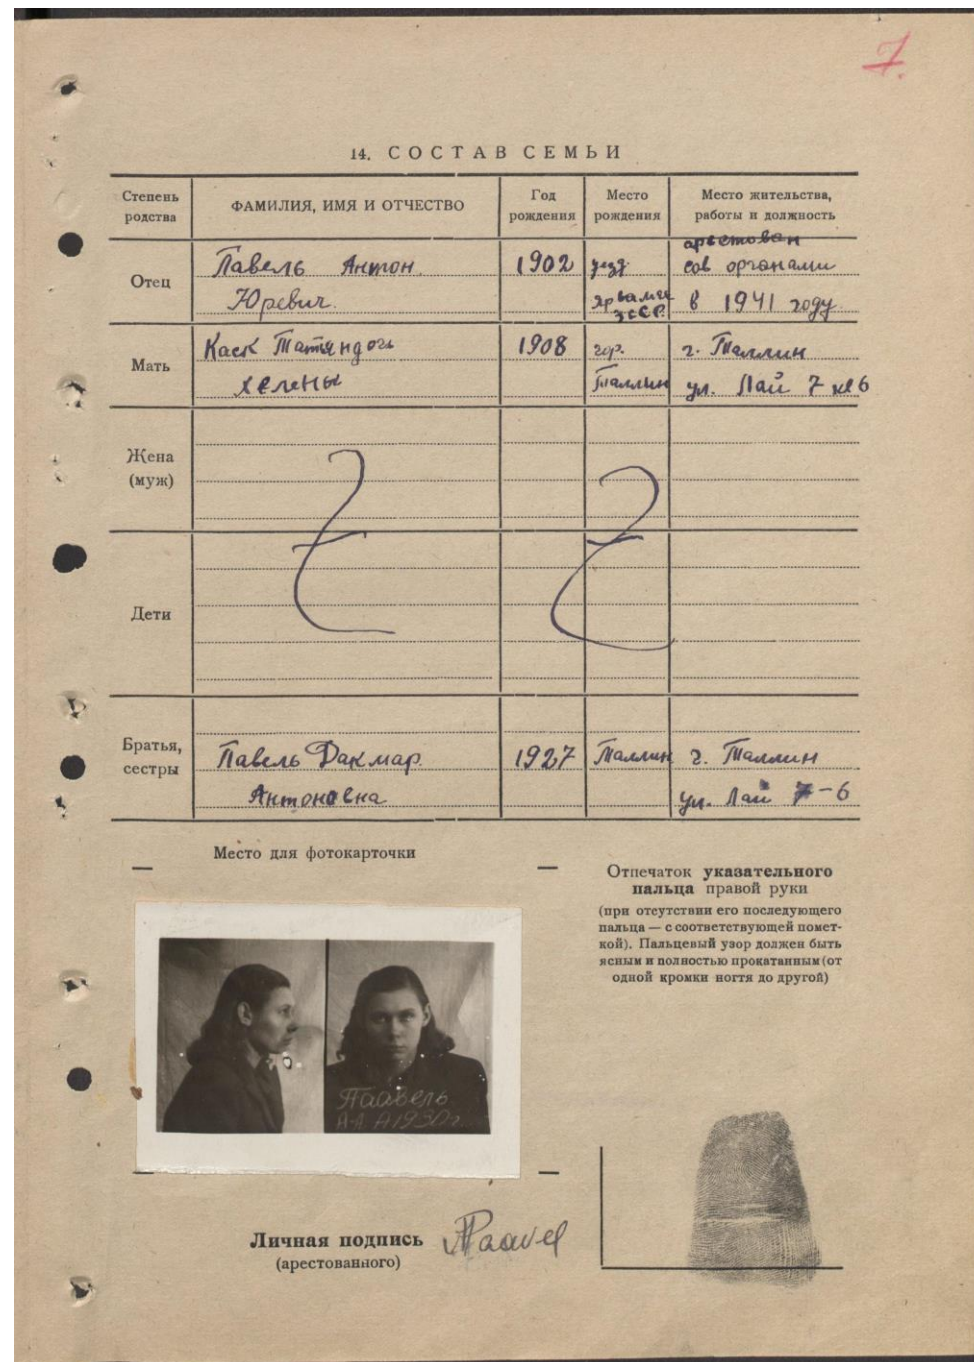 7.
14. СОСТАВ СЕМЬИ
Степень родства
ФАМИЛИЯ, ИМЯ И ОТЧЕСТВО
Год рождения
Место рождения
Место жительства, работы и должность
Отец
Павель Антон
Юревич.
1902
уезд
ЭССР
арестован
сов органами
в 1941 году
Мать
Каск
хелены
1908
гор.
Таллин
г. Таллин
ул. Лай 7 кв 6
Жена
(муж)
Дети
Братья,
сестры
Павель Дакмар.
Антоновна
1927
Таллин
г. Таллин
ул. Лай 7-6
Место для фотокарточки
Отпечаток указательного
пальца правой руки
(при отсутствии его последующего
пальца — с соответствующей помет-
кой). Пальцевый узор должен быть
ясным и полностью прокатанным (от
одной кромки ногтя до другой)
Паавель
А-А. 1930г.
Личная подпись
(арестованного)
APaavel